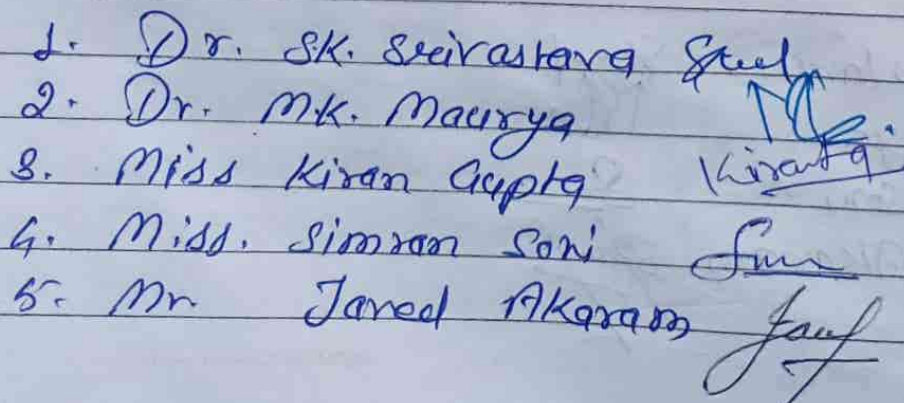 1. Dr. SK. Srivastava
2. Dr. MK. Maurya
3. Miss Kiran Gupta Kiran
4. Miss. Simran Soni
5. Mr. Javed Akaram